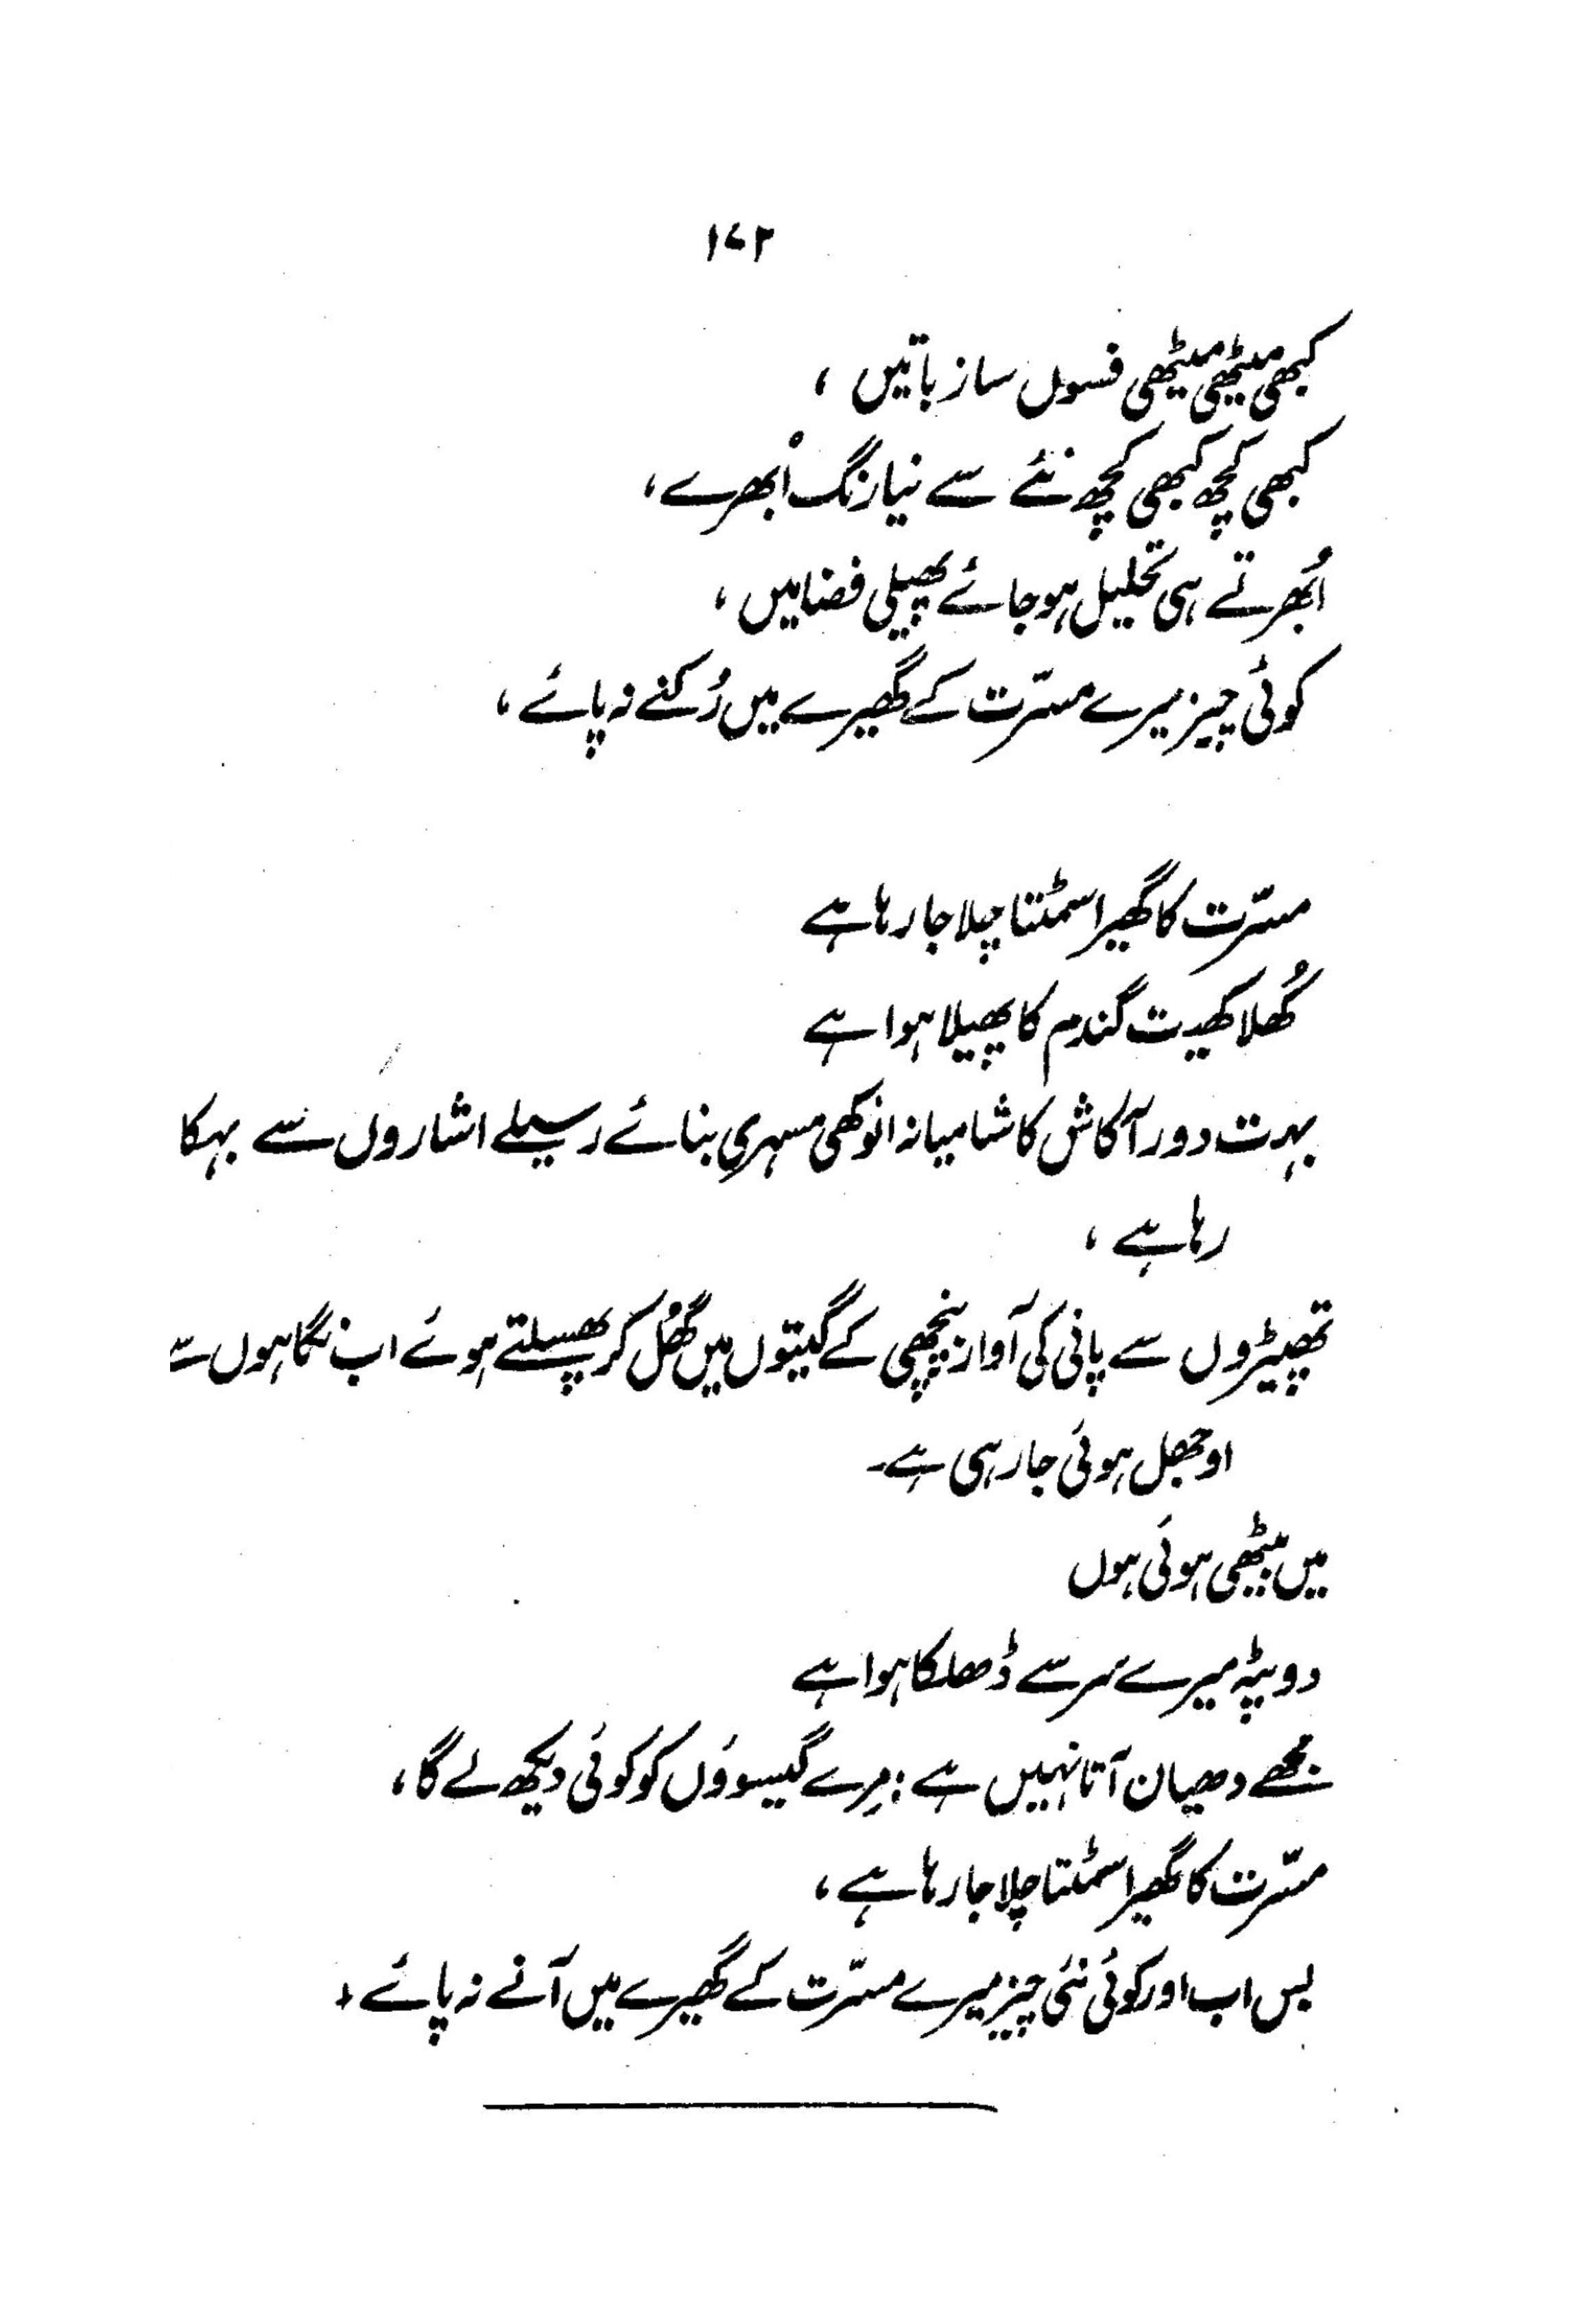 ۱۷۲
کبھی میٹھی میٹھی فسوں ساز باتیں ،
کبھی کچھ کبھی کچھ نئے سے نیا رنگ اُبھرے ،
اُبھرتے ہی تحلیل ہو جائے پھیلی فضا میں ،
کوئی چیز میرے مسرّت کے گھیرے میں رُکنے نہ پائے ،
مسرّت کا گھیرا سمٹتا چلا جا رہا ہے
کُھلا کھیت گندم کا پھیلا ہوا ہے
بہت دور آکاش کا شامیانہ انوکھی مسہری بنائے رسیلے اشاروں سے بہکا
رہا ہے ،
تھپیڑوں سے پانی کی آواز پنچھی کے گیتوں میں گھُل کر پھسلتے ہوئے اب نگاہوں سے
اوجھل ہوئی جا رہی ہے۔
میں بیٹھی ہوئی ہوں
دوپٹہ میرے سر سے ڈھلکا ہوا ہے
مجھے دھیان آتا نہیں ہے : مِرے گیسوؤں کو کوئی دیکھ لے گا ،
مسرّت کا گھیرا سمٹتا چلا جا رہا ہے ،
بس اب اور کوئی نئی چیز میرے مسرّت کے گھیرے میں آنے نہ پائے ،